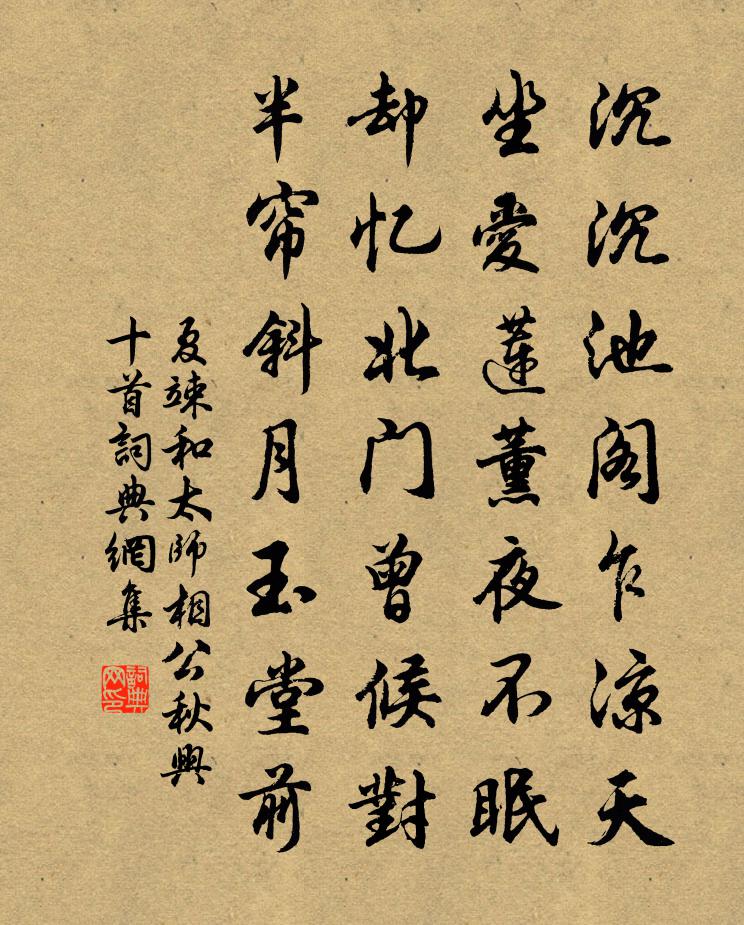 沉沉池阁乍凉天
坐愛蓮薰夜不眠
却忆北门曾候對
半帘斜月玉堂前
夏竦和太师相公秋興
十首詞典網集
詞典
网印